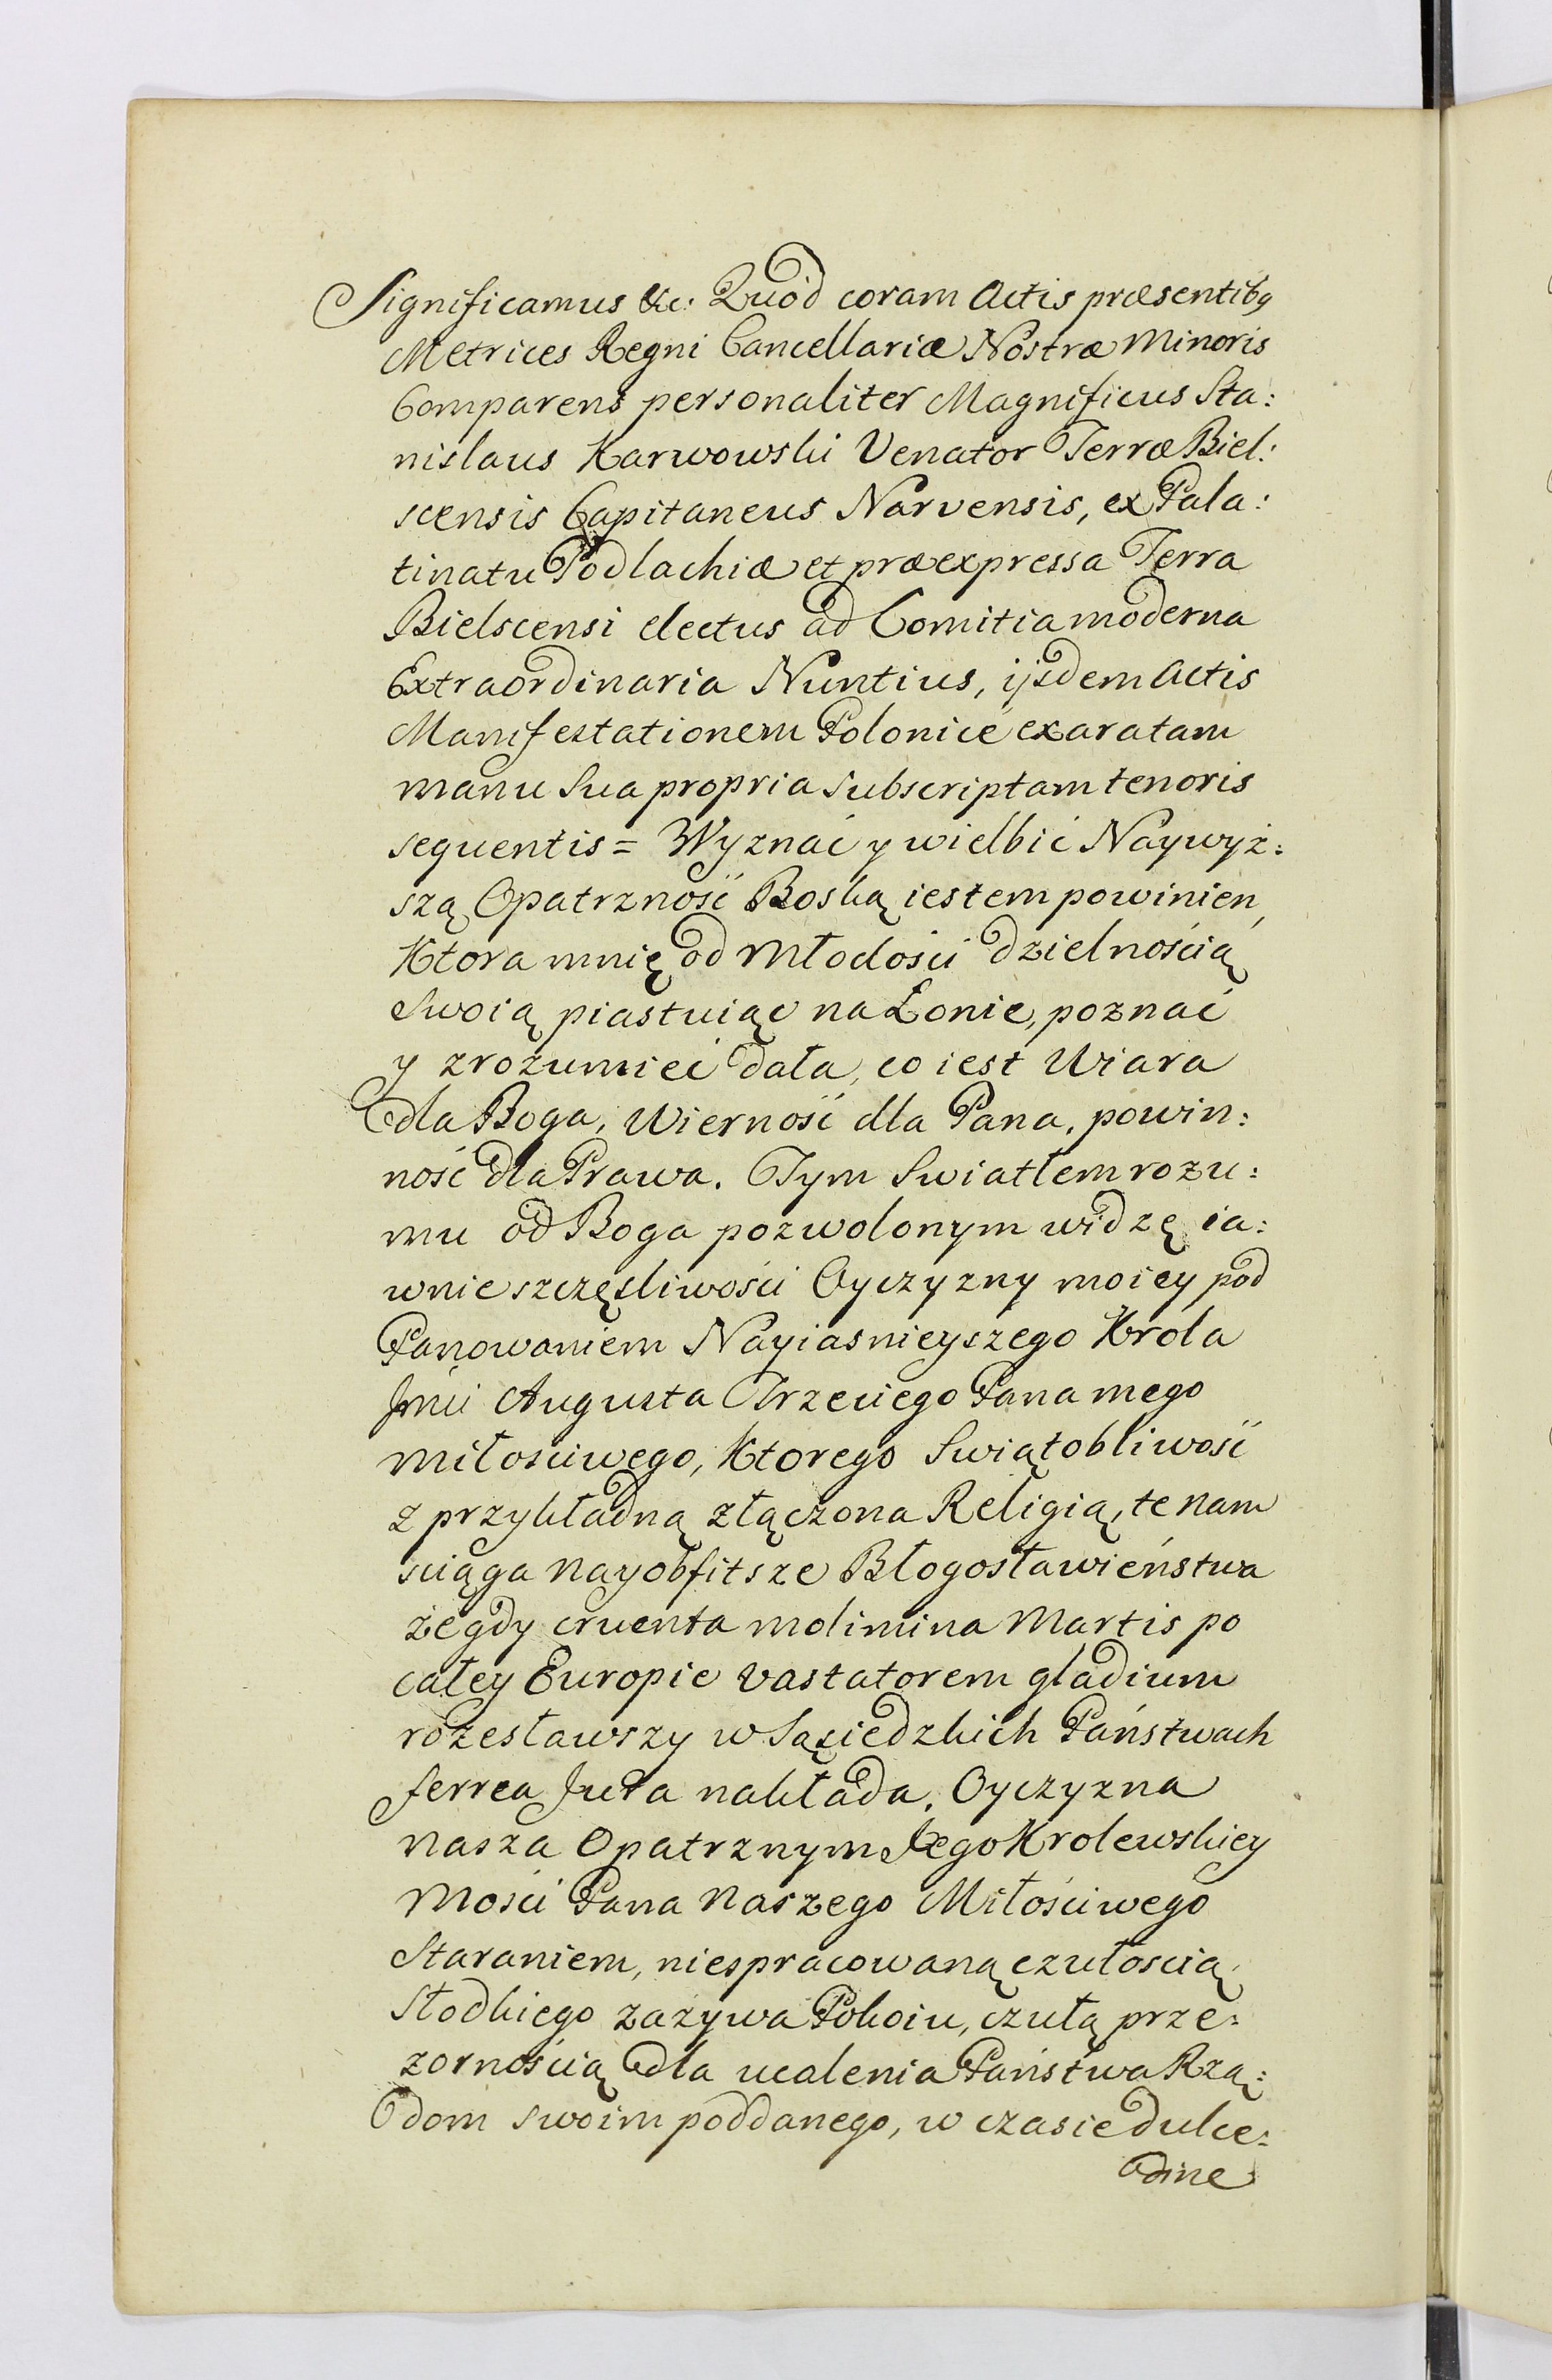 Significamus &c: Quòd coram Actis præsentibq
Metrices Regni Cancellariæ Nostræ Minoris
Comparens personaliter Magnificus Sta:
nislaus Karwowski Venator Terræ Biel:
scensis Capitaneus Narvensis, ex Pala:
tinatu Podlachiæ et præexpressa Terra
Bielscensi electus ad Comitia moderna
Extraordinaria Nuntius, ijsdem Actis
Manifestationem Polonicè exaratam
manu Sua propria subscriptam tenoris
sequentis = Wyznać y wielbić Naywyż:
szą Opatrzność Boską iestem powinien,
Ktora mnię od Młodości dzielnością
Swoią piastuiąc na Łonie, poznać
y zrozumieć dała, co iest Wiara
dla Boga, Wierność dla Pana, powin:
ność dla Prawa. Tym Swiatłem rozu:
mu od Boga pozwolonym widzę ia:
wnie szczęśliwości Oyczyzny moiey pod
Panowaniem Nayiasnieyszego Krola
Jmci Augusta Trzeciego Pana mego
Miłosciwego, Ktorego Swiątobliwość
z przykładną złączona Religią, te nam
sciąga Nayobfitsze Błogosławieństwa
że gdy cruenta molimina Martis po
całey Europie vastatorem gladium
rozesławszy w Sąsiedzkich Państwach
ferrea Jura nakłada, Oyczyzna
Nasza Opatrznym Jego Krolewskiey
Mości Pana Naszego Miłościwego
Staraniem, niespracowaną czułoscią
Słodkiego zażywa Pokoiu, czułą prze:
zornością dla ucalenia Państwa Rzą:
dom swoim poddanego, w czasie dulce:
dine